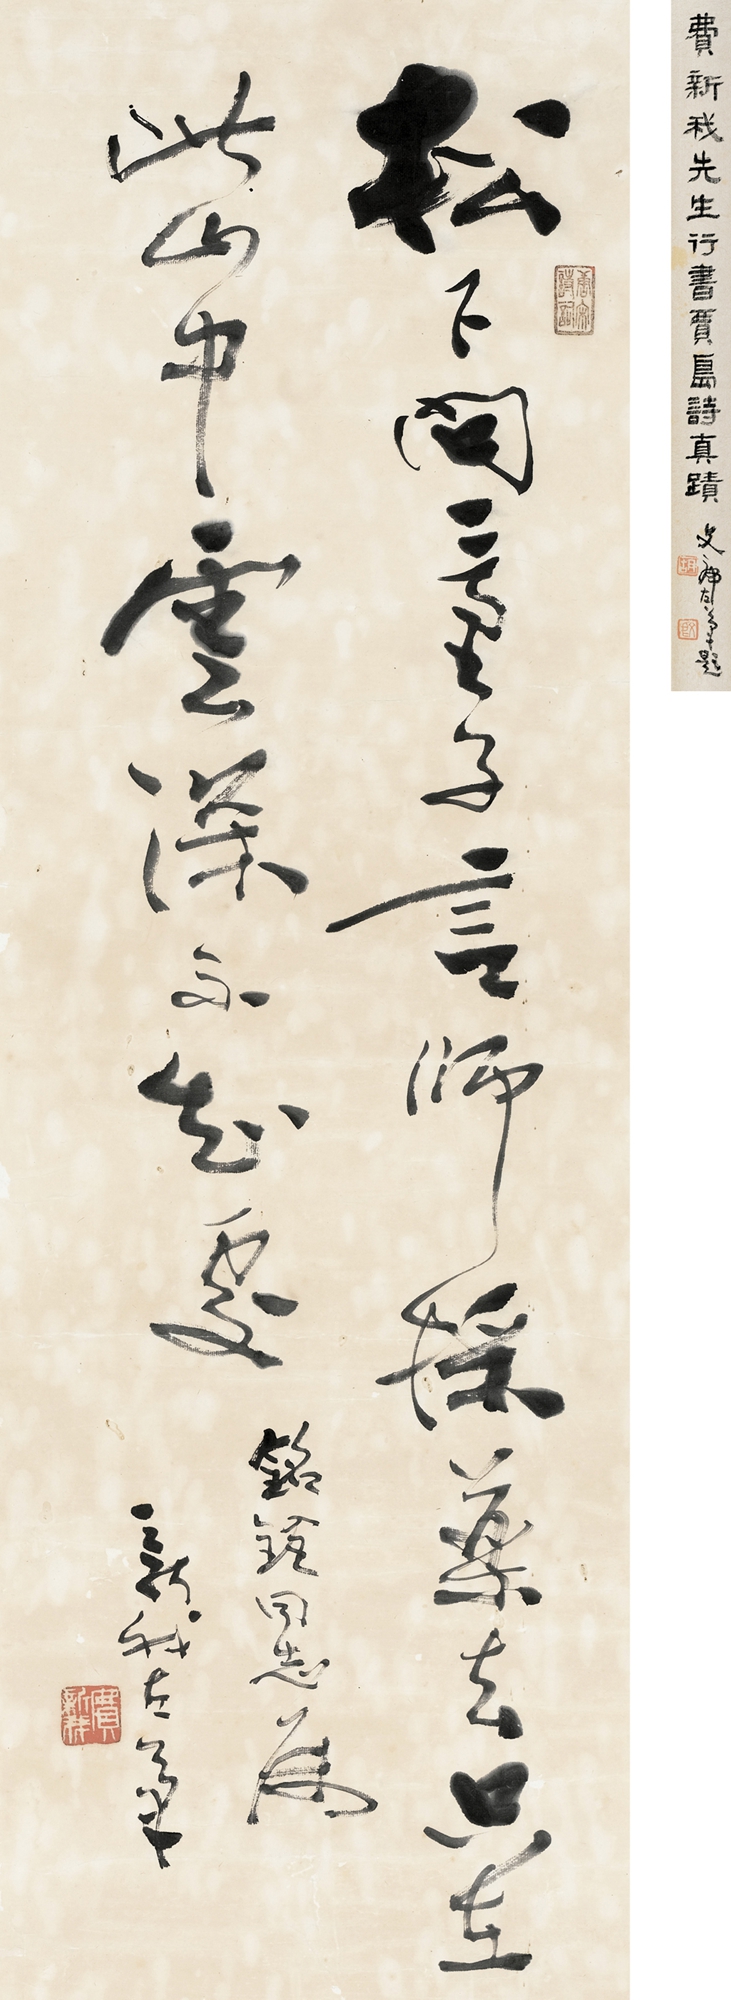 費新我先生行書賈島詩真蹟
松下問童子言師採藥去只在
此山中雲深不知處
銘銓同志屬
新我左筆
費新我